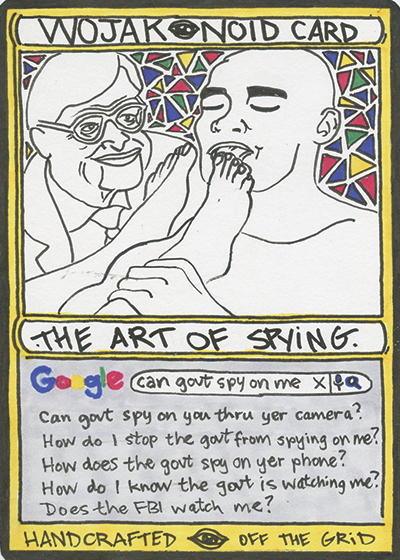 WOJAK NOID CARD
THE ART OF SPYING.
Google can govt spy on me X
Can govt spy on you thru yer camera?
How do I stop the govt from spying on me?
How does the govt spy on yer phone?
How do I know the govt is watching me?
Does the FBI watch me?
HANDCRAFTED OFF THE GRiD